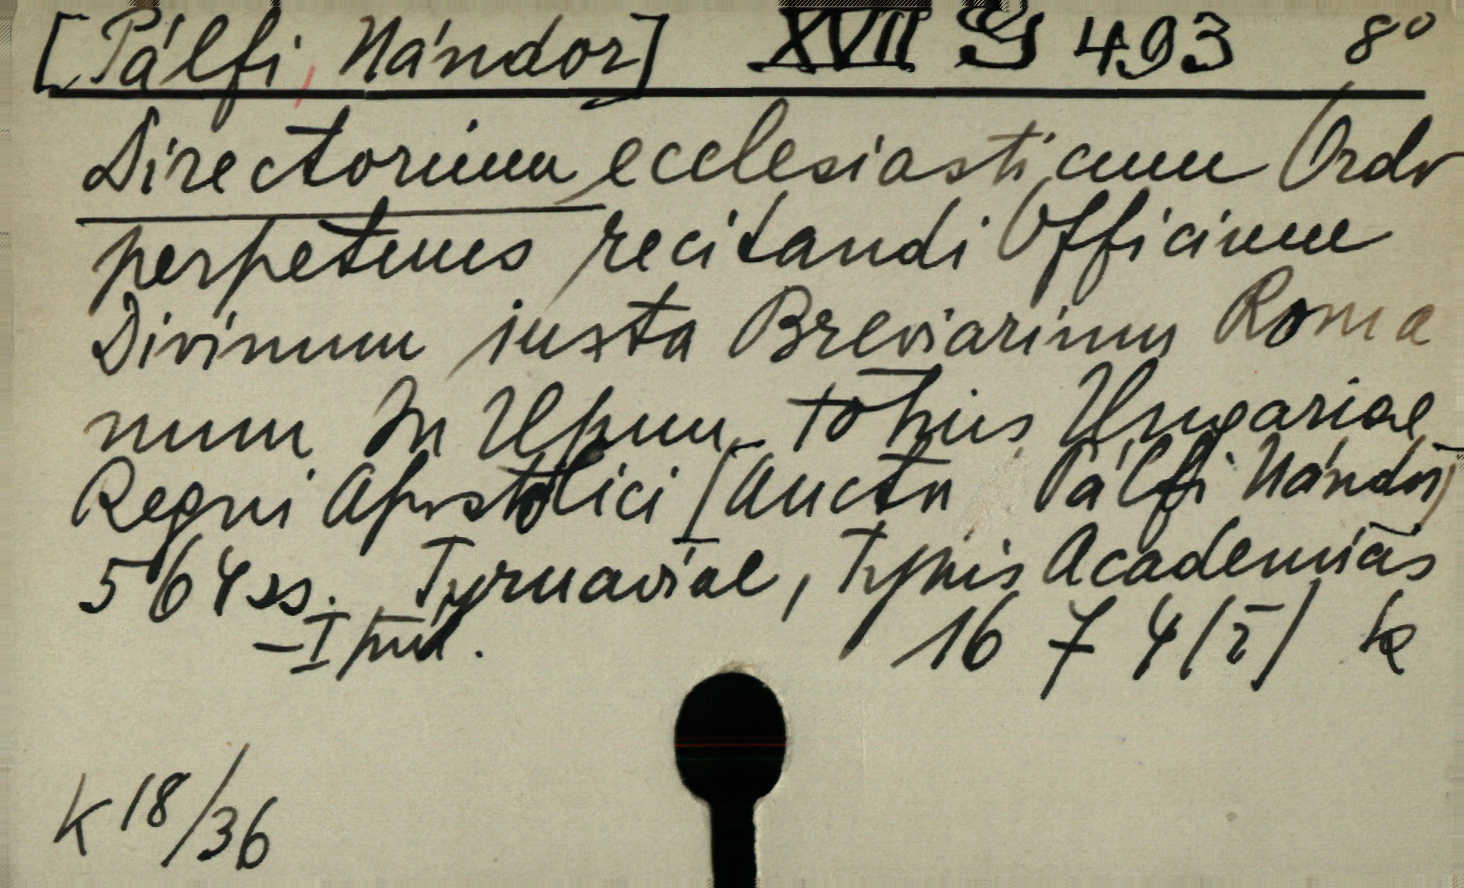 [Pálfi, Nándor] XVII 493 8°
Directorium ecclesiasticum Ordo
perpetuus recitandi Officium
Divinum iuxta Breviarium Roma
num In Usum totius Ungariae
Regni Apostolici [Auctn Pálfi Nándor]
564 ss. Tyrnaviae, Typis Academias
-I 1674 k
K 18/36